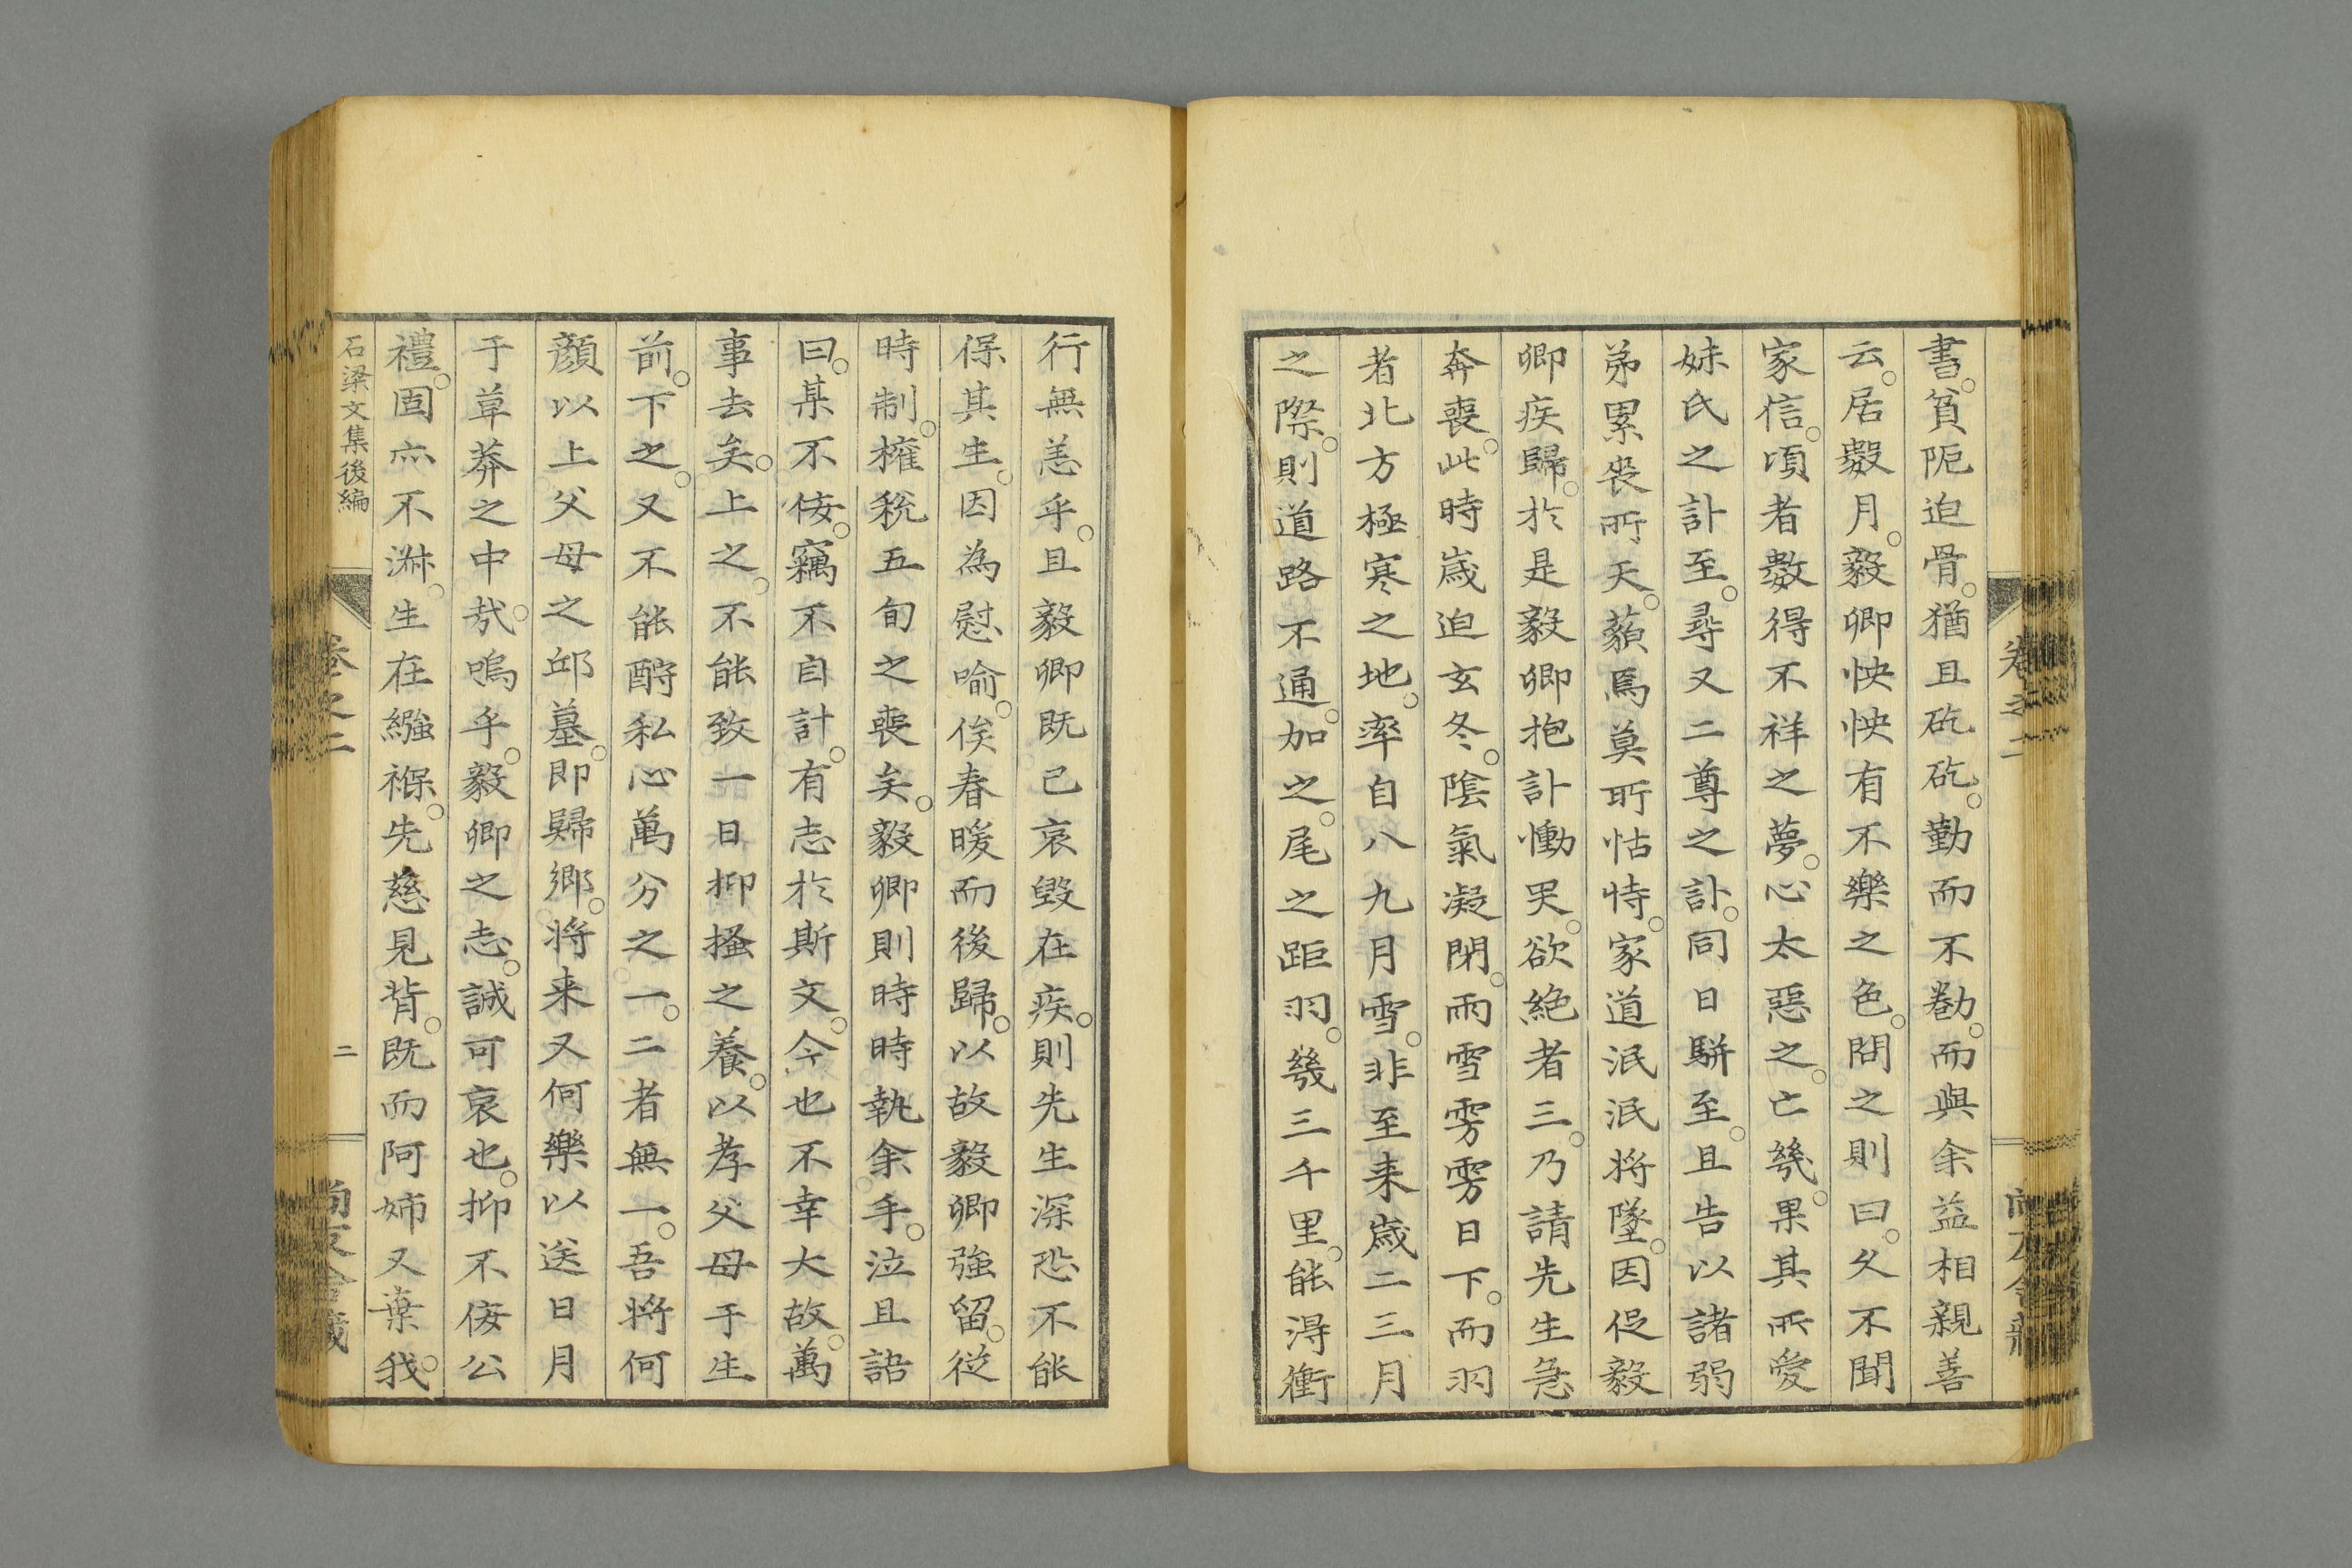 書。貧阨迫骨。猶且矻矻。勤而不勌。而與余益相親善
云。居數月。毅卿怏怏有不樂之色。問之則曰。久不聞
家信。頃者數得不祥之夢。心太惡之。亡幾。果其所愛
妹氏之訃至。尋又二尊之訃。同日騈至。且告以諸弱
弟累喪所天。藐焉莫所怙恃。家道泯泯將墜。因促毅
卿疾歸。於是毅卿抱訃慟哭。欲絶者三。乃請先生急
奔喪。此時歳迫玄冬。陰氣凝閉。雨雪雱雱日下。而羽
者北方極寒之地。率自八九月雪。非至来歳二三月
之際。則道路不通。加之。尾之距羽。幾三千里。能淂衝
卷之二
行無恙乎。且毅卿既已哀毀在疾。則先生深恐不能
保其生。因為慰喻。俟春暖而後歸。以故毅卿強留。従
時制。権税五旬之喪矣。毅卿則時時執余手。泣且語
曰。某不侫。竊不自計。有志於斯文。今也不幸大故。萬
事去矣。上之。不能致一日抑搔之養。以孝父母于生
前。下之。又不能酧私心萬分之一。二者無一。吾將何
顔以上父母之邱墓。即歸鄉。将来又何樂以送日月
于草莽之中㢤。嗚乎。毅卿之志。誠可哀也。抑不侫公
禮。固亦不淋。生在繈褓。先慈見背。既而阿姉又棄我。
石梁文集後編
卷之二
二